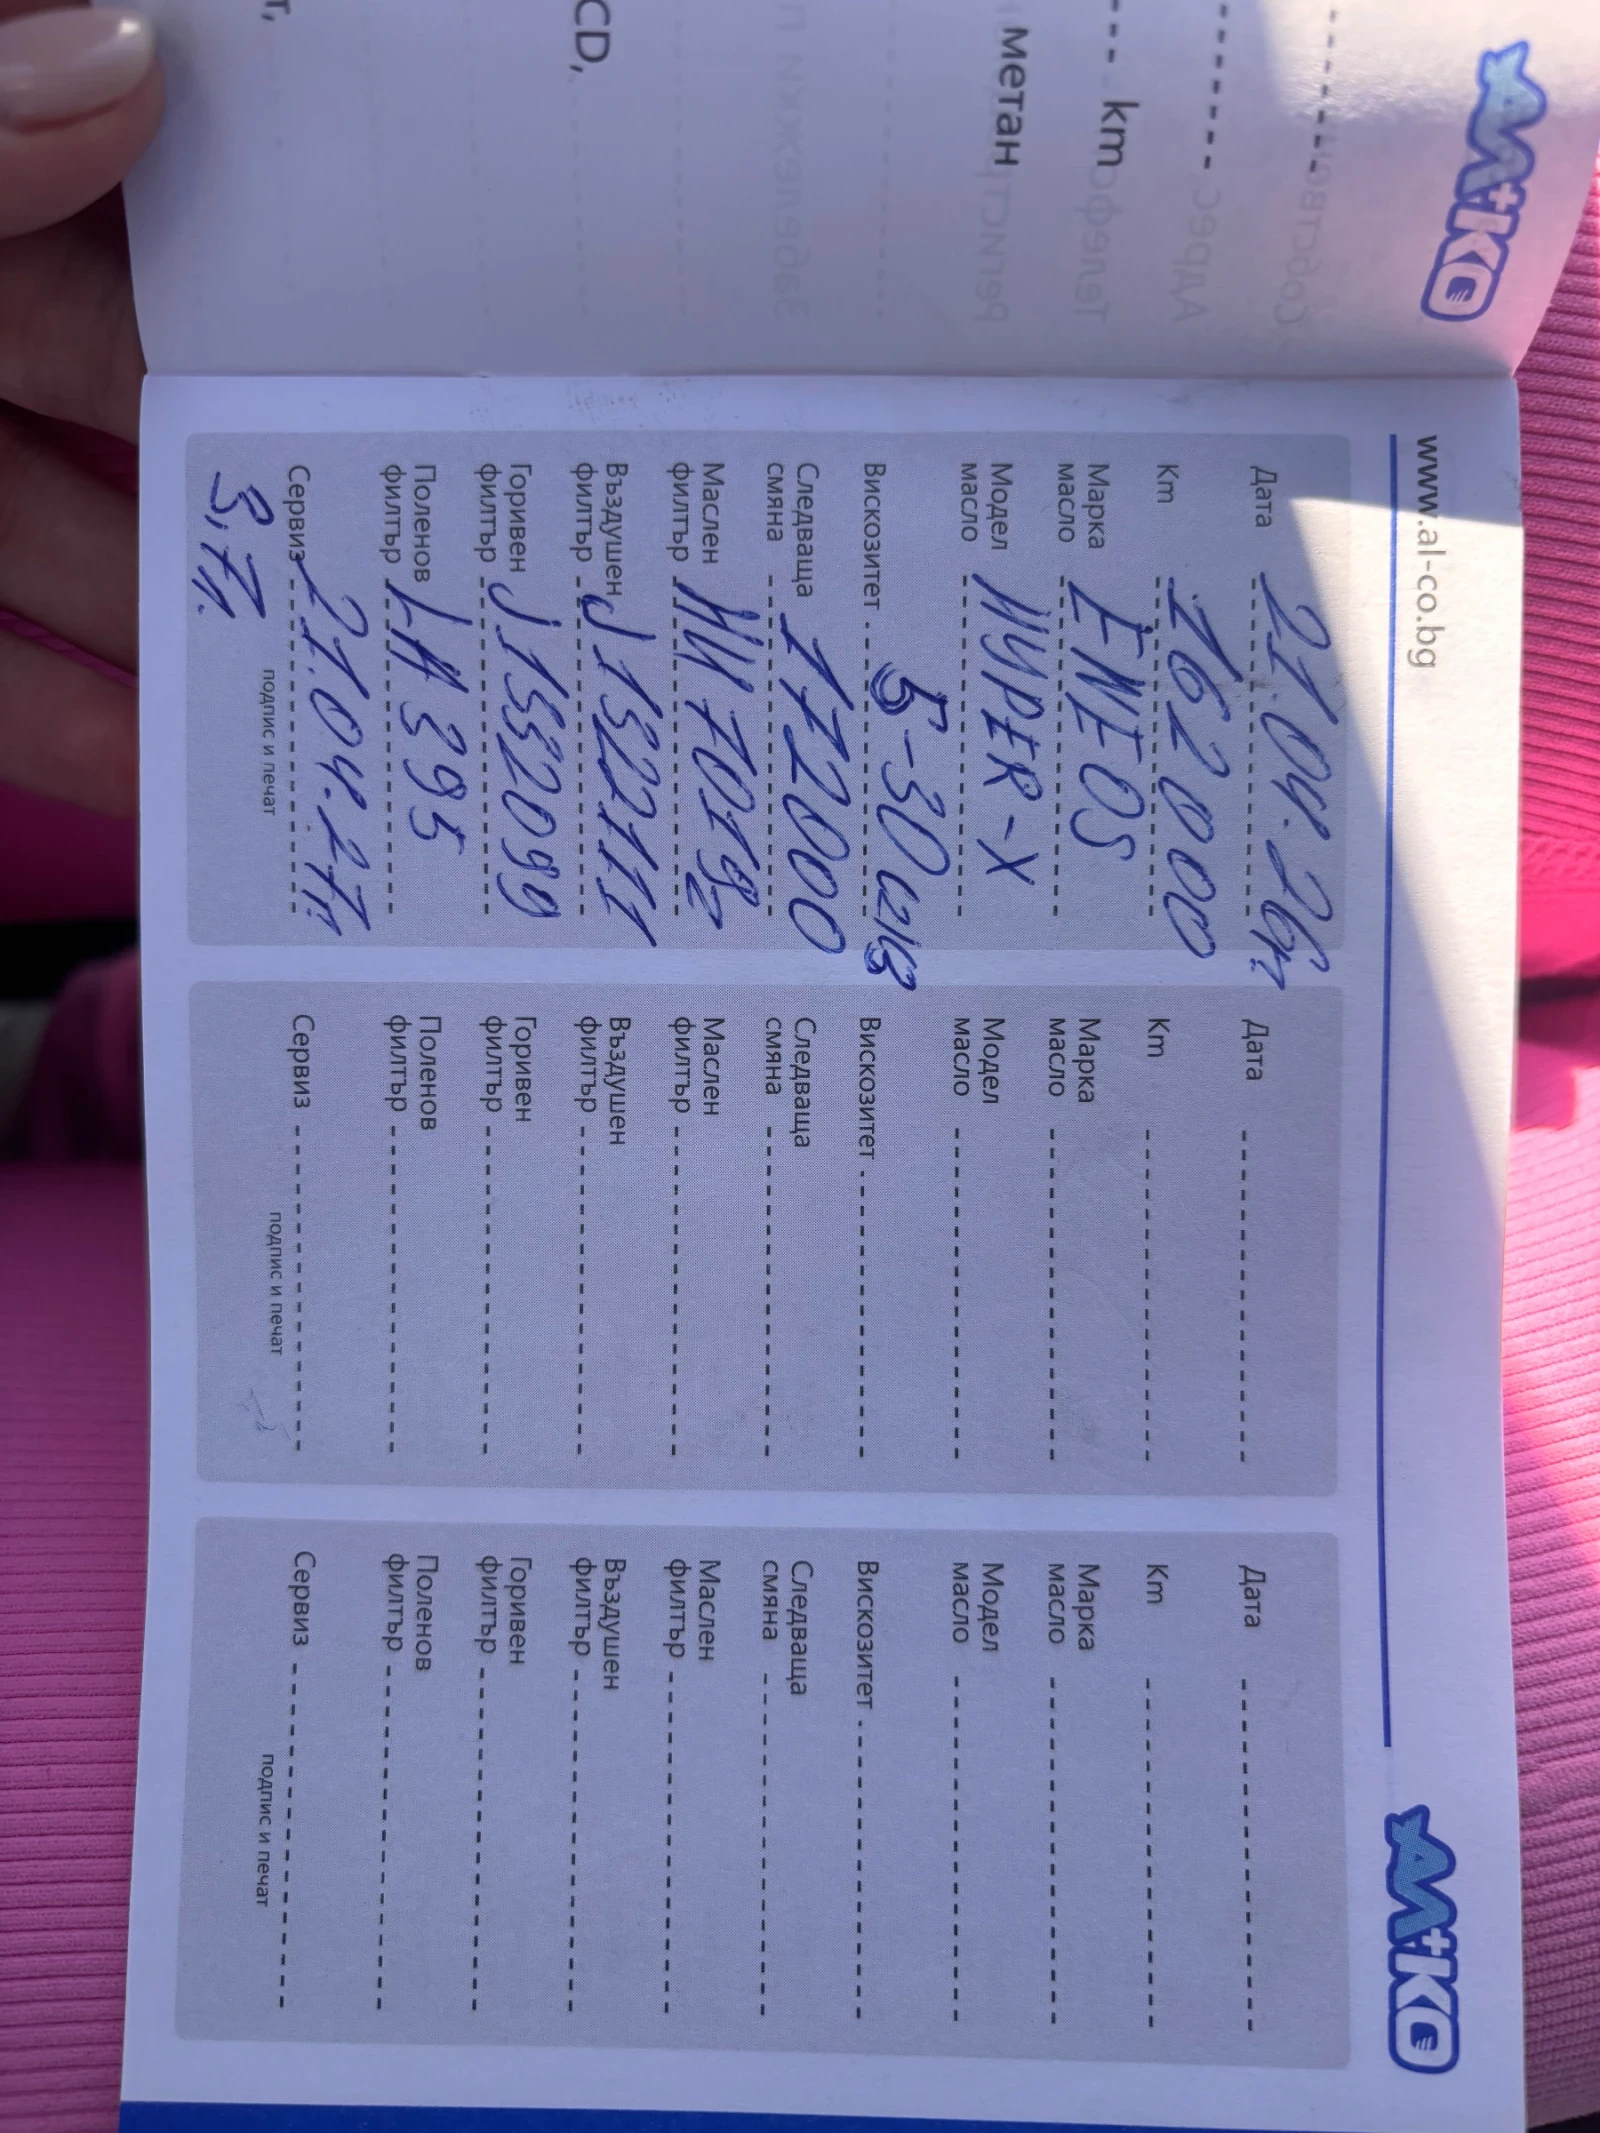 АЛ+КО
km
метан
CD,
т,
www.al-co.bg
АЛ+КО
Дата 21.04.26г.
Km 162000
Марка масло ENEOS
Модел масло HYPER-X
Вискозитет 5-30
Следваща смяна 172000
Маслен филтър
Въздушен филтър J1322111
Горивен филтър J1332099
Поленов филтър LA 395
Сервиз 21.04.27г.
подпис и печат
5,7л.
Дата
Km
Марка масло
Модел масло
Вискозитет
Следваща смяна
Маслен филтър
Въздушен филтър
Горивен филтър
Поленов филтър
Сервиз
подпис и печат
Дата
Km
Марка масло
Модел масло
Вискозитет
Следваща смяна
Маслен филтър
Въздушен филтър
Горивен филтър
Поленов филтър
Сервиз
подпис и печат